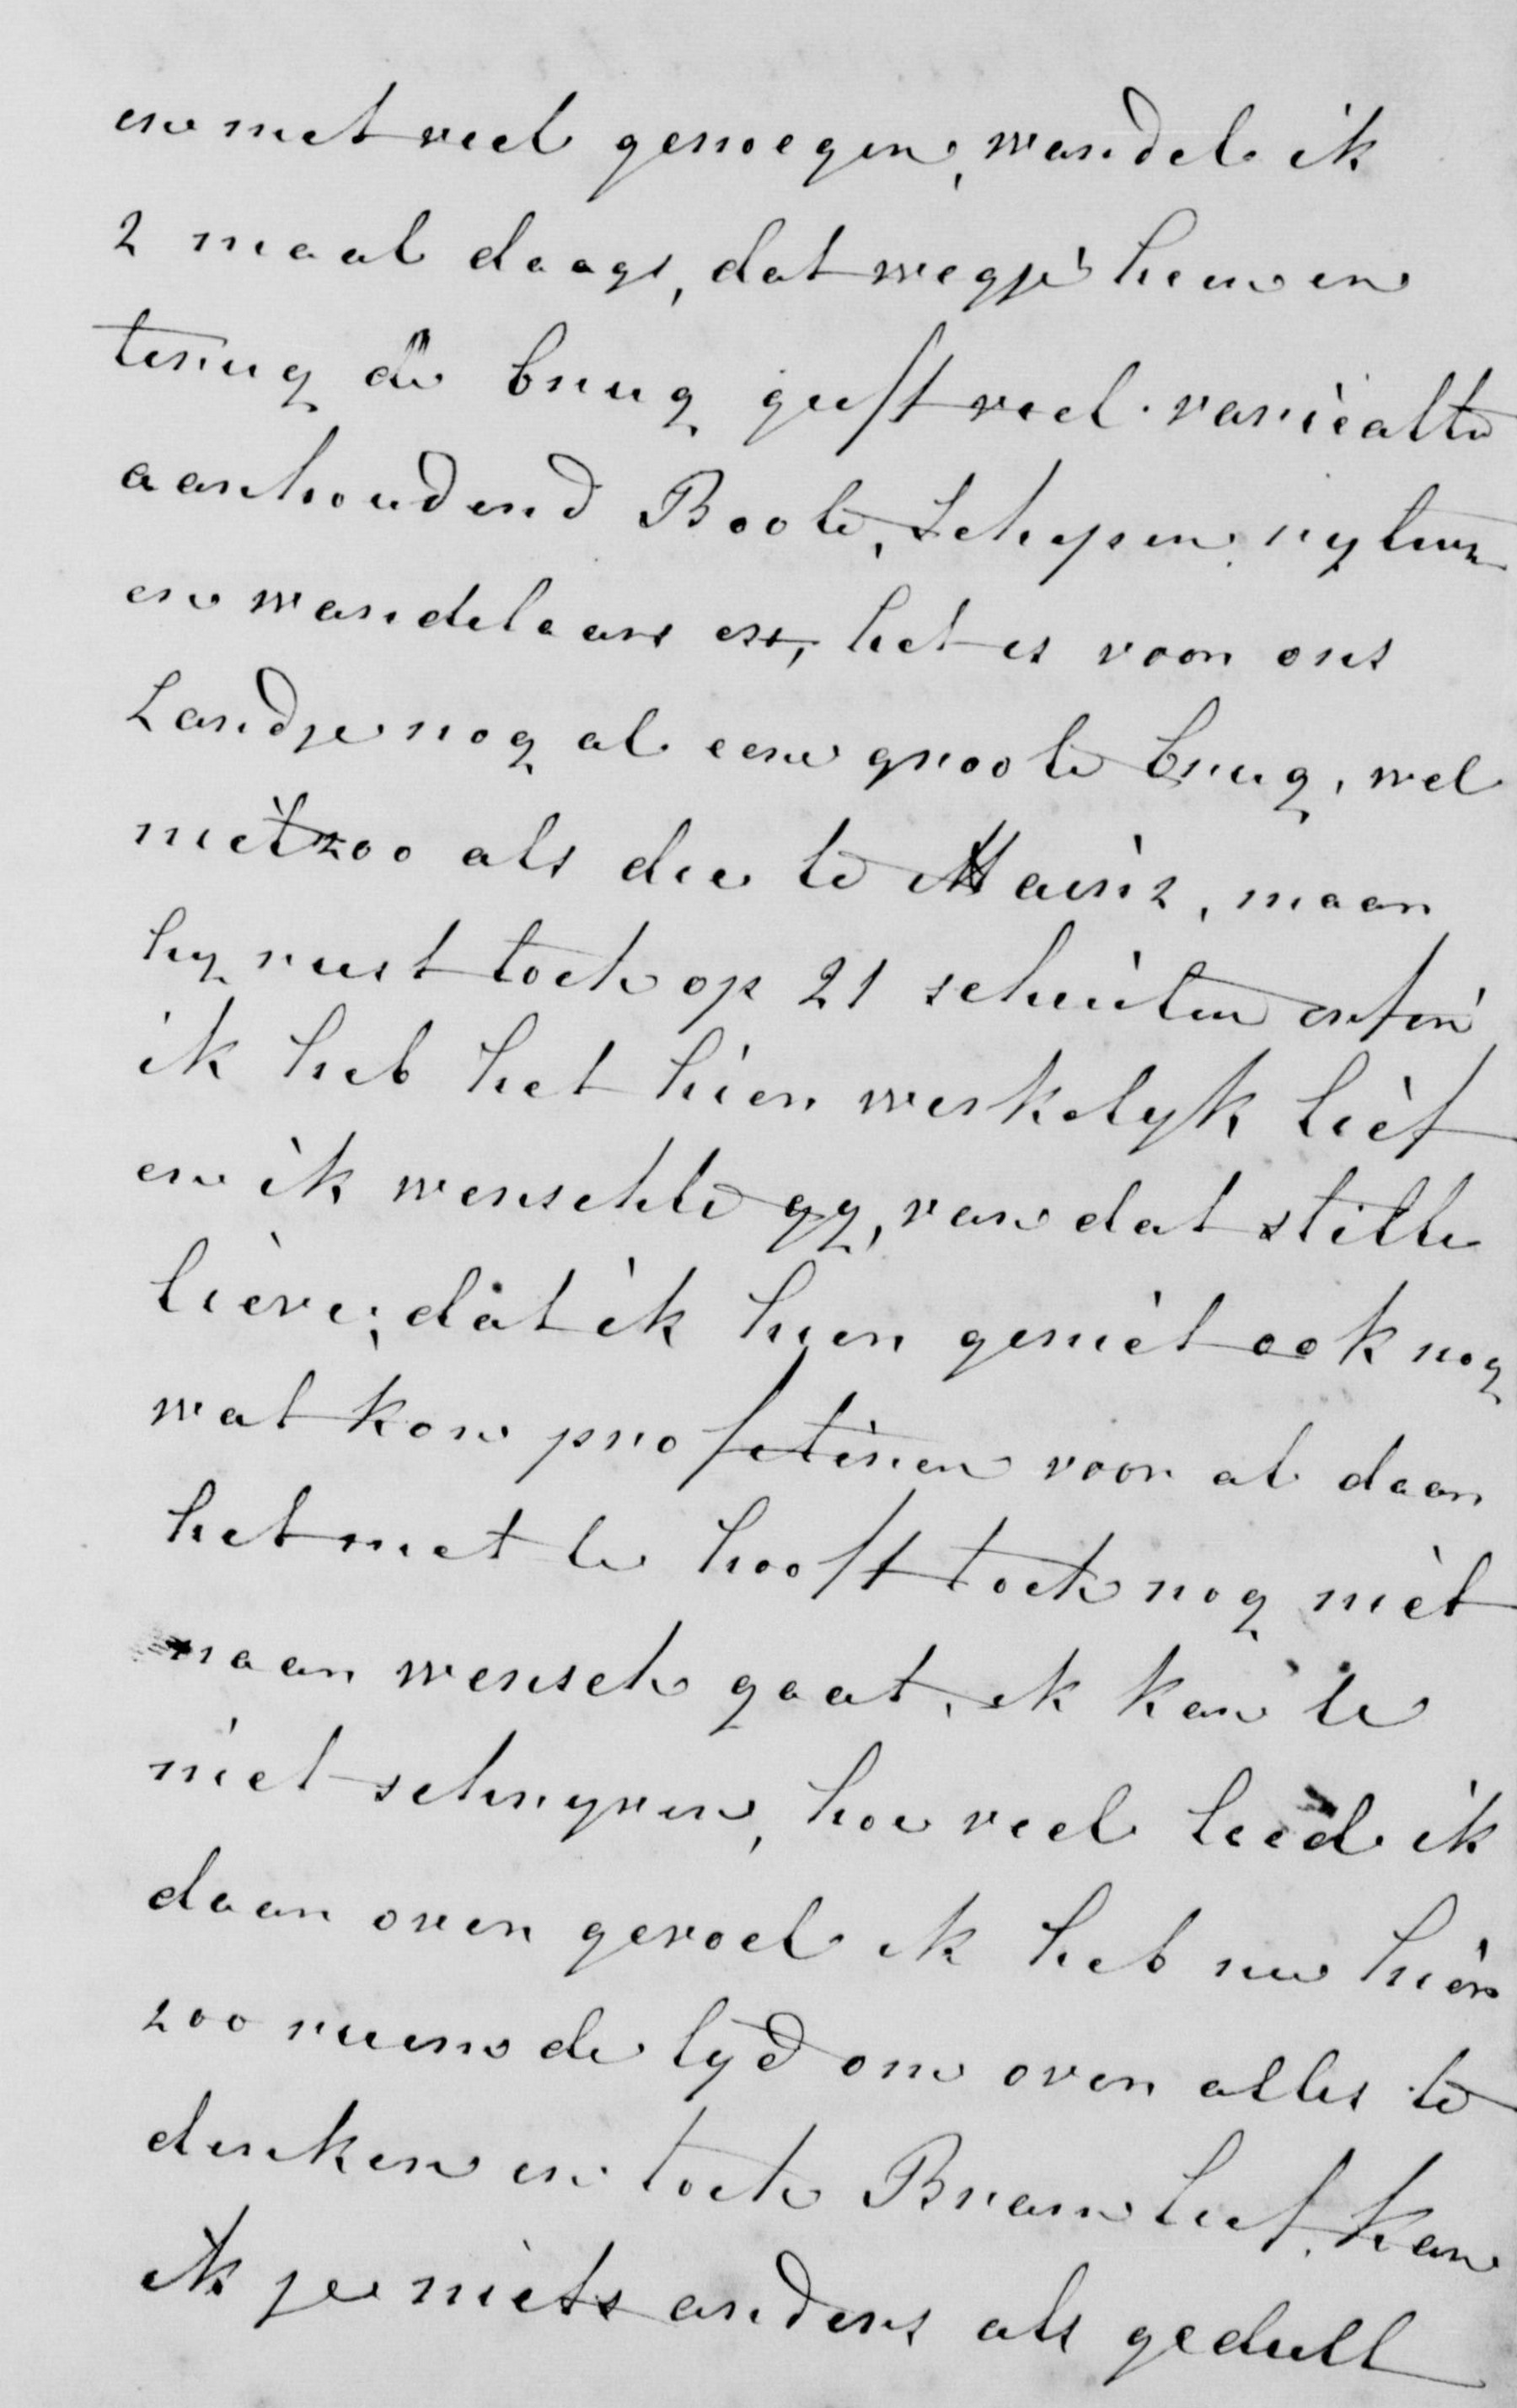 en met veel genoegen, wandel ik
2 maal daags, dat wegje heen en
terug de brug geeft veel varieatte
aanhoudend Boote, schepen, rytuig
en wandelaars en, het is voor ons
Landje nog al een groote brug, wel
niet zoo als die te Mainz, maar
hy rust toch op 21 schuiten enfin
ik heb het hier werkelyk lief
en ik wenschte gy, van dat stille
lieve, dat ik hier geniet ook nog
wat kon profetiren voor al daar
het met te hooft toch nog niet
naar wensch gaat, ik kan te
niet schryven, hoe veel leed ik
daar over gevoel ik heb nu hier
zoo ruim de tyd om over alles te
denken en toch Bram lief, kan
ik je niets anders als gedult